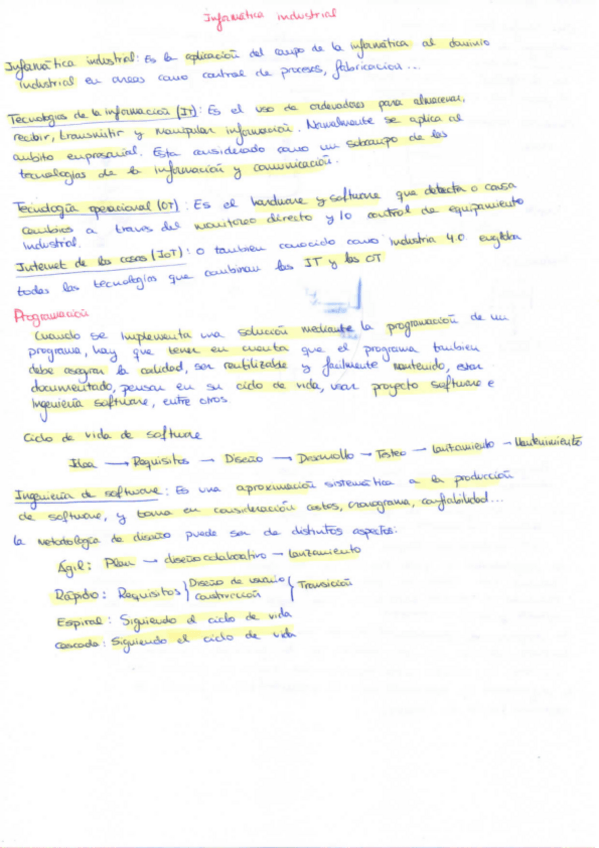 Informática industrial
Informática industrial: Es la aplicación del campo de la informática al dominio
industrial en areas como control de procesos, fabricacion...
Tecnologias de la informacion (IT): Es el uso de ordenadores para almacenar,
recibir, transmitir y manipular informacion. Normalmente se aplica al
ambito empresarial. Esta considerado como un subcampo de las
tecnologias de la información y comunicación.
Tecnología operacional (OT): Es el hardware y software que detecta o causa
cambios a traves del monitoreo directo y/o control de equipamiento
industrial.
Internet de las cosas (IoT): o tambien conocido como industria 4.0 engloba
todas las tecnologias que combinan las IT y las OT
Programación
Cuando se implementa una solución mediante la programación de un
programa, hay que tener en cuenta que el programa tambien
debe asegurar la calidad, ser reutilizable y facilmente mantenido, estar
documentado, pensar en su ciclo de vida, usar proyecto software e
ingenieria software, entre otros
Ciclo de vida de software
Idea → Requisitos → Diseño → Desarrollo → Testeo → Lanzamiento → Mantenimiento
Ingeniería de software: Es una aproximación sistemática a la producción
de software, y toma en consideración costes, cronograma, confiabilidad...
La metodología de diseño puede ser de distintos aspectos:
Ágil: Plan → diseño colaborativo → lanzamiento
Rápido: Requisitos } Diseño de usuario { Transición
construcción
Espiral: Siguiendo el ciclo de vida
Cascada: Siguiendo el ciclo de vida